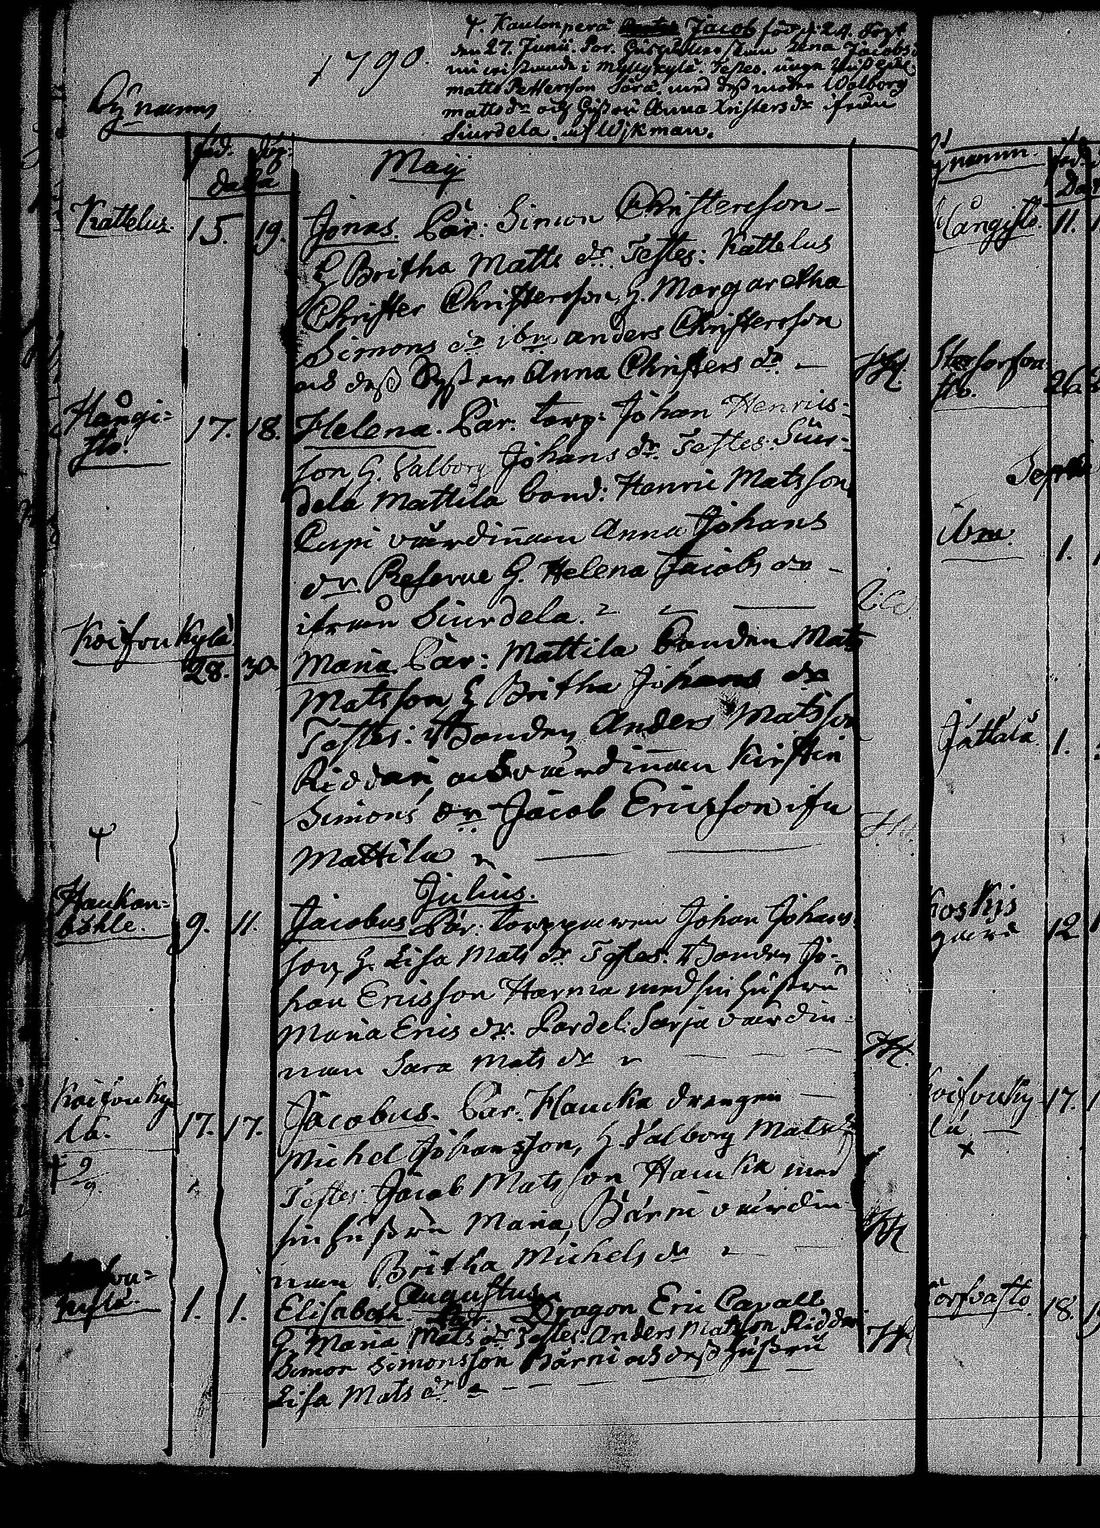 1790.
Kaulonperä Jacob född d. 24. döpt
den 27. Junii. Par. Lena Jacobs
i Myllykylä. Testes. unga
Matts Pettersson Sara, med dess moder Walborg
Matts dr och Hustru Anna Christers dr ifrån
Siurdela. af Wikman.
By namn
föd. döp.
Data
Maij
Kattelus. 15. 19. Jonas. Par: Simon Christersson
H Britha Matts dr. Testes: Kattelus
Christer Christersson, H. Margaretha
Simons dr ibm anders Christersson
och dess Syster Anna Christers dr. —
Hångi=
sto. 17. 18. Helena. Par. torp: Johan Henrics=
son H. Valborg Johans dr. Testes. Siur=
dela Mattila bond: Henric Matsson
Cupi värdinnan Anna Johans
dr. Reserve H. Helena Jacobs dr —
ifrån Siurdela.
Koifvukylä
28. 30. Maria Par: Mattila bonden Mats
Matsson H Britha Johans dr
Testes: Bonden Anders Matsson
Riddari, och värdinnan Kirstin
Simons dr Jacob Ericsson ifrn
Mattila
Julius.
Haukan=
böhle. 9. 11. Jacobus Par: torpparen Johan Johans
son, H. Lisa Mats dr Testes. Bonden Jo=
han Ericsson Harma med sin hustru
Maria Erics dr. Pardel: Sarja värdin=
nan Sara Mats dr
Koifvuky
lä. 17. 17. Jacobus. Par. Haucka drengen
Michel Johansson, H. Valborg Mats dr
Testes Jacob Matsson Haucka med
sin hustru Maria, Bärni värdin
nan Britha Michels dr
Augustus
kylä. 1. 1. Elisabeth. Par. Dragon Eric Cavall
H. Maria Mats dr Testes. Anders Matsson Ridder
Simon Simonsson Bärni och dess hustru
Lisa Mats dr
namn. föd.
Hångisto. 11.
sto. 26.
Septe
ibm. 1.
Jättälä 1.
Koskis
gård 12
Koifvuky
lä, — 17.
18.